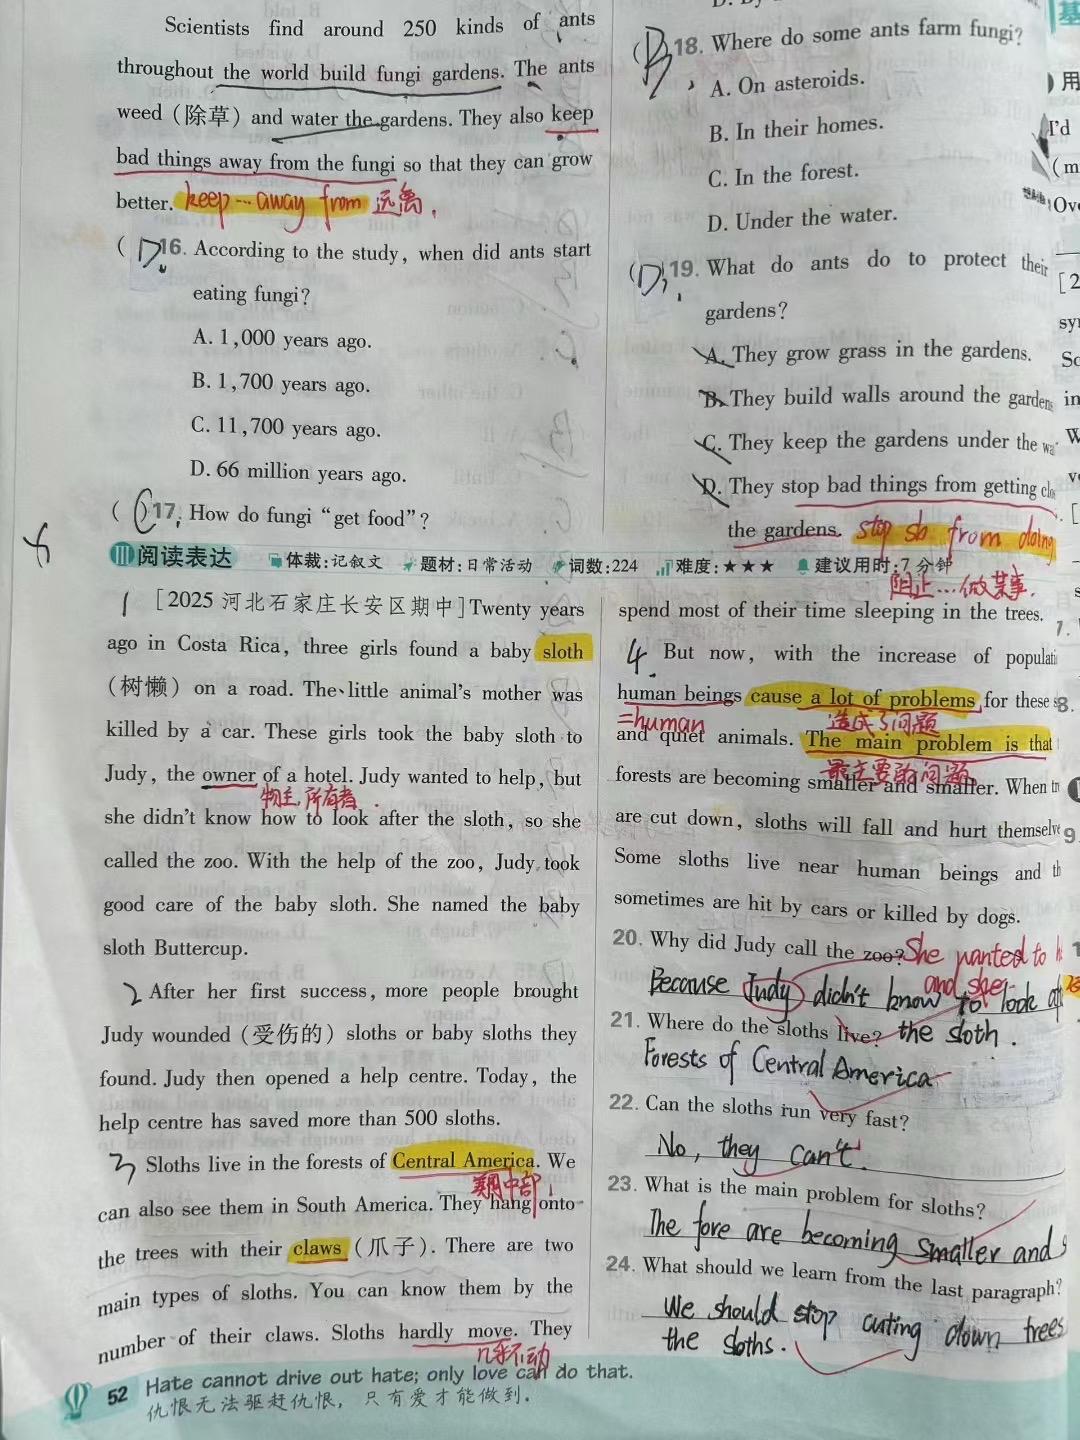 Scientists find around 250 kinds of ants
throughout the world build fungi gardens. The ants
weed（除草）and water the gardens. They also keep
bad things away from the fungi so that they can grow
better. keep…away from 远离，
( D 16. According to the study, when did ants start
eating fungi?
A. 1,000 years ago.
B. 1,700 years ago.
C. 11,700 years ago.
D. 66 million years ago.
( C 17. How do fungi “get food”?
( B 18. Where do some ants farm fungi?
A. On asteroids.
B. In their homes.
C. In the forest.
D. Under the water.
( D 19. What do ants do to protect their
gardens?
A. They grow grass in the gardens.
B. They build walls around the gardens
C. They keep the gardens under the wa
D. They stop bad things from getting clo
the gardens. stop sb from doing
阻止…做某事.
Ⅲ 阅读表达 体裁:记叙文 题材:日常活动 词数:224 难度:★★★ 建议用时:7 分钟
1 [2025 河北石家庄长安区期中]Twenty years
ago in Costa Rica, three girls found a baby sloth
（树懒）on a road. The little animal’s mother was
killed by a car. These girls took the baby sloth to
Judy, the owner of a hotel. Judy wanted to help, but
物主,所有者.
she didn’t know how to look after the sloth, so she
called the zoo. With the help of the zoo, Judy took
good care of the baby sloth. She named the baby
sloth Buttercup.
2 After her first success, more people brought
Judy wounded（受伤的）sloths or baby sloths they
found. Judy then opened a help centre. Today, the
help centre has saved more than 500 sloths.
3 Sloths live in the forests of Central America. We
美国中部
can also see them in South America. They hang onto
the trees with their claws（爪子）. There are two
main types of sloths. You can know them by the
number of their claws. Sloths hardly move. They
几乎不动
spend most of their time sleeping in the trees.
4. But now, with the increase of populati
human beings cause a lot of problems for these s
=human 造成了问题
and quiet animals. The main problem is that
最主要的问题
forests are becoming smaller and smaller. When tr
are cut down, sloths will fall and hurt themselve
Some sloths live near human beings and th
sometimes are hit by cars or killed by dogs.
20. Why did Judy call the zoo? She wanted to h
and she
Because Judy didn't know to look af
the sloth.
21. Where do the sloths live?
Forests of Central America
22. Can the sloths run very fast?
No, they can't.
23. What is the main problem for sloths?
The fore are becoming smaller and s
24. What should we learn from the last paragraph?
We should stop cuting down trees
the sloths.
52 Hate cannot drive out hate; only love can do that.
仇恨无法驱赶仇恨，只有爱才能做到.